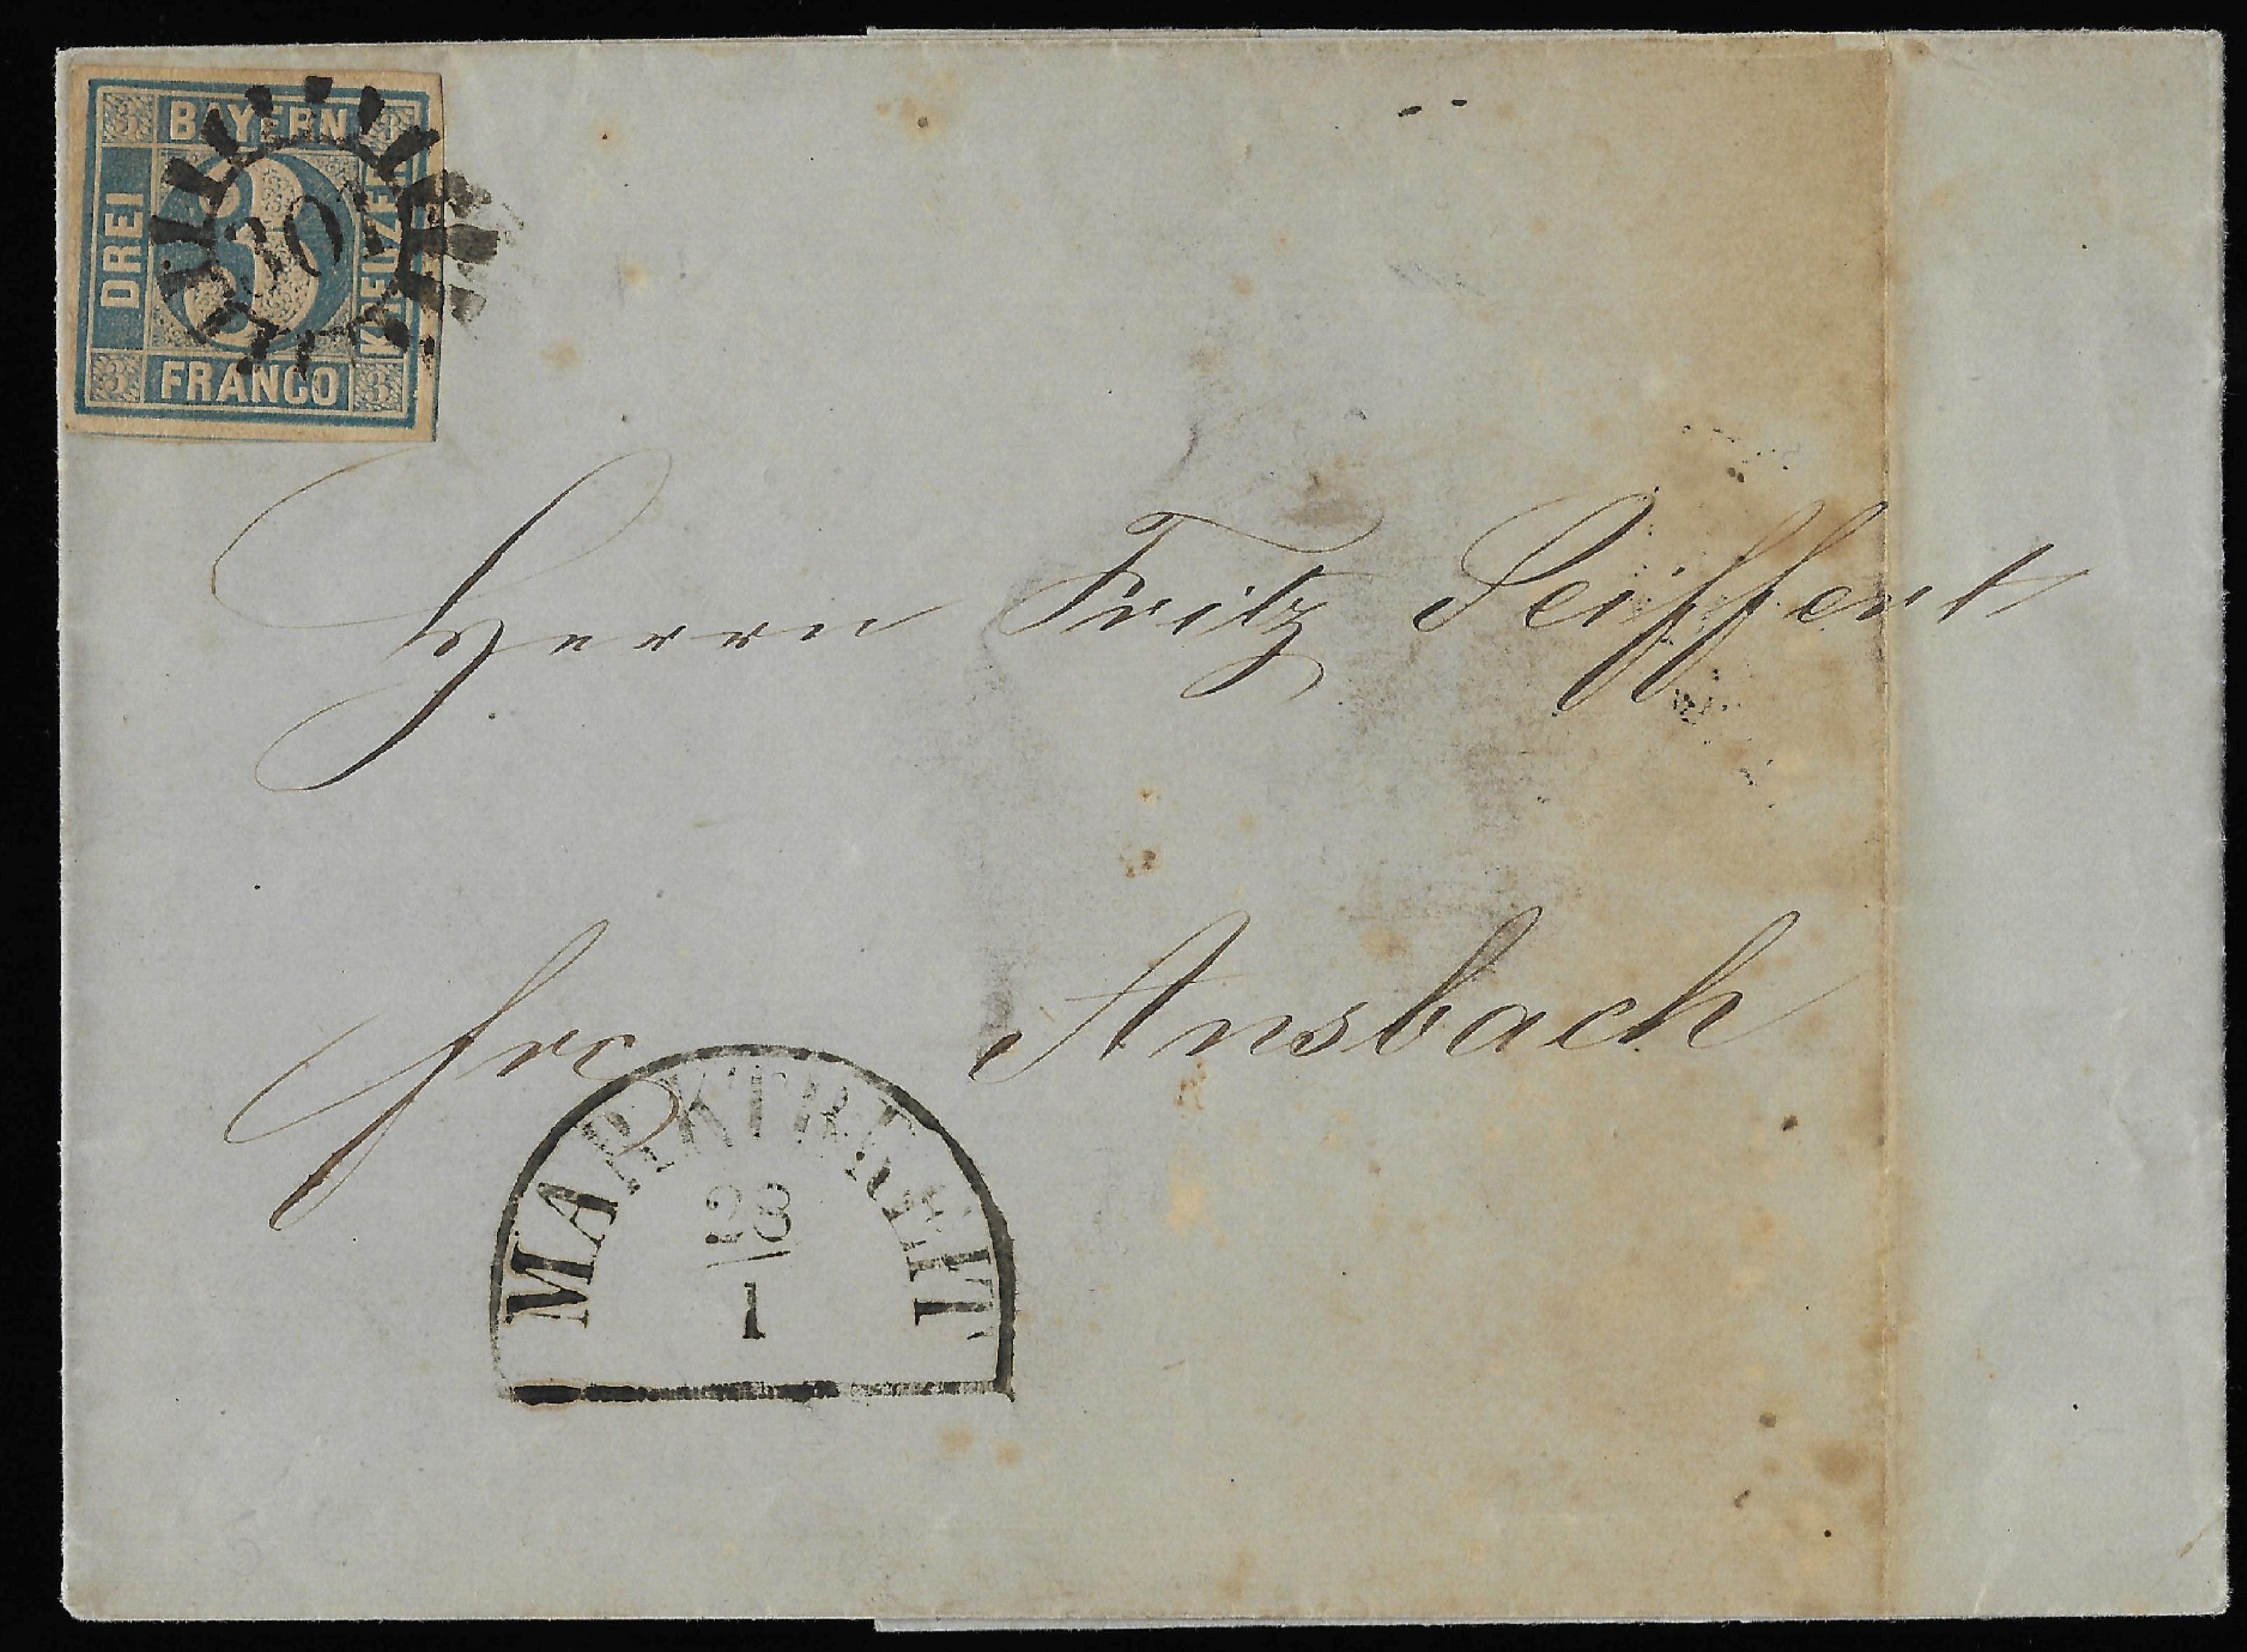 3 BAYERN 3
DREI
3
KREUZER
3 FRANCO 3
Herrn Fritz Seiffert
frc Ansbach
MARKTBREIT
28
1